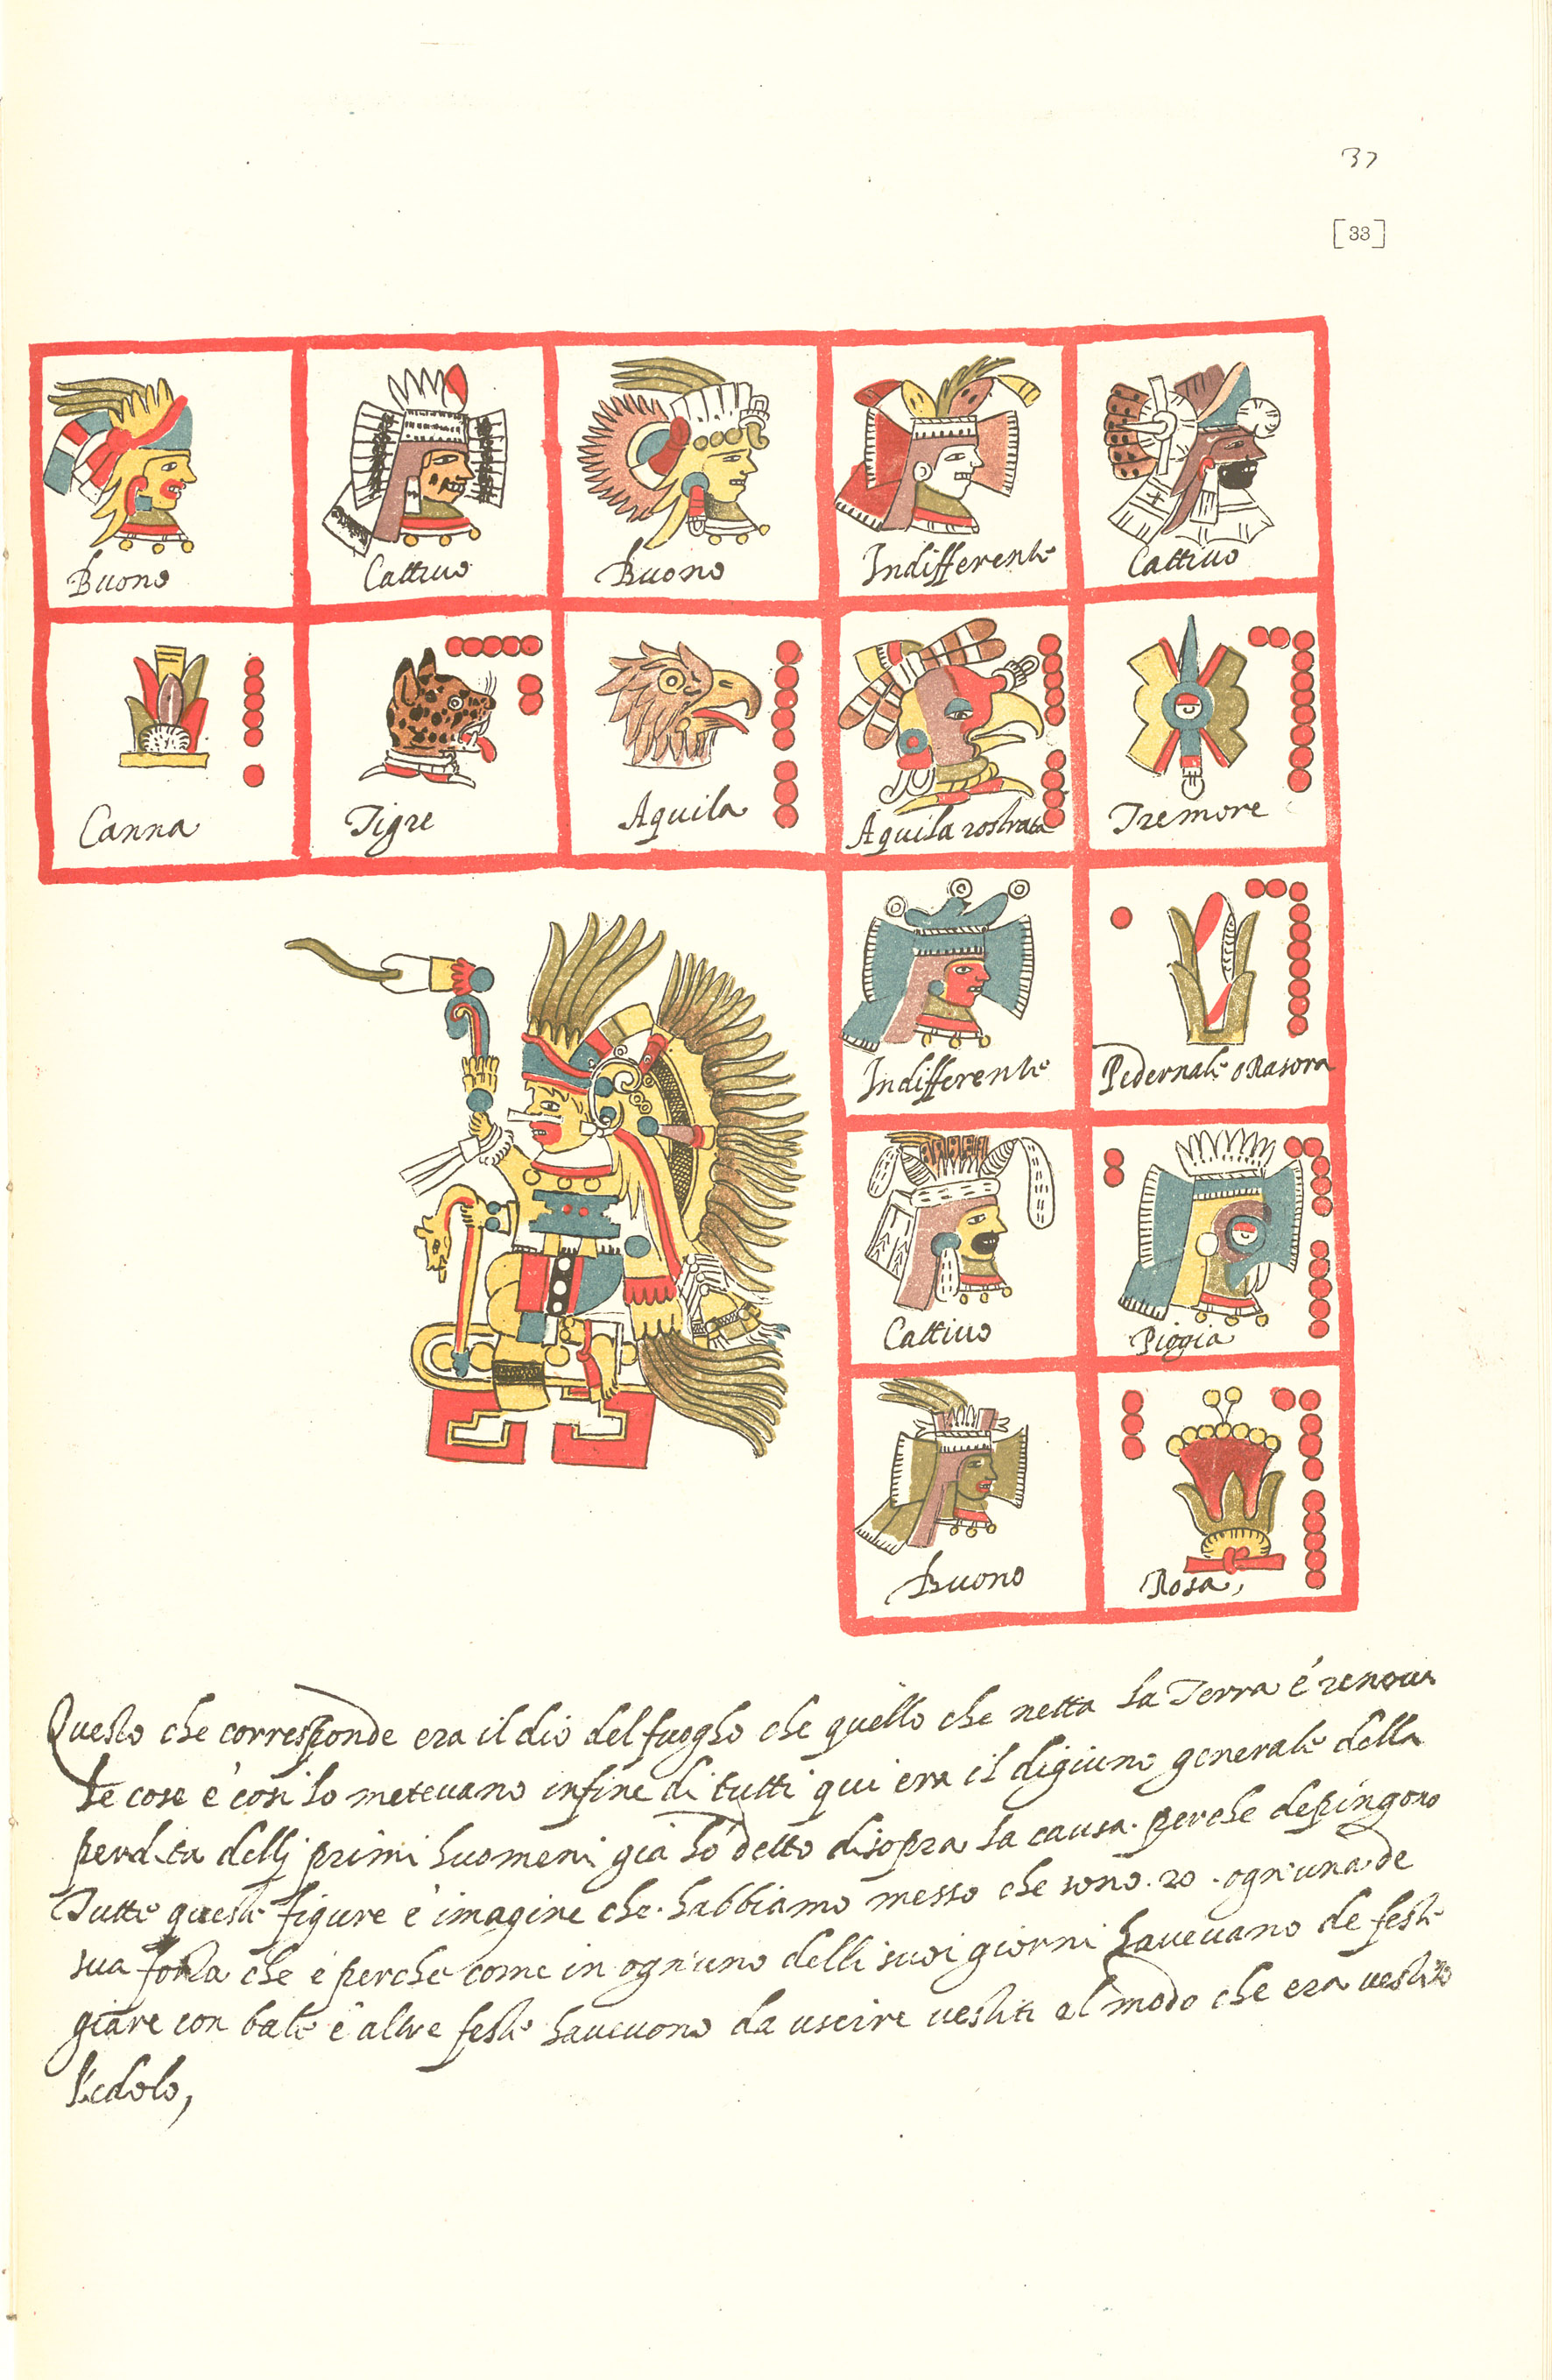 37
[33]
Buono
Cattiuo
Buono
Indifferente
Cattiuo
Canna
Tigre
Aquila
Aquila rostrata
Tremore
Indifferente
Pedernale o Rasora
Cattiuo
Pioggia
Buono
Rosa,
Questo che corresponde era il dio del fuogho che quello che netta la Terra é renoua
le cose e cosi lo meteuano infine di tutti qui era il digiuno generale della
perdita dellj primi huomeni gia hó detto disopra la causa. perche depingono
Tutte queste figure e imagine che habbiamo messo che sono .20. ogn'una de
sua che é perche come in ogn'uno delli suoi giorni haueuano de feste
giare con bale é altre feste haueuono da uscire uestiti al modo che era uestito